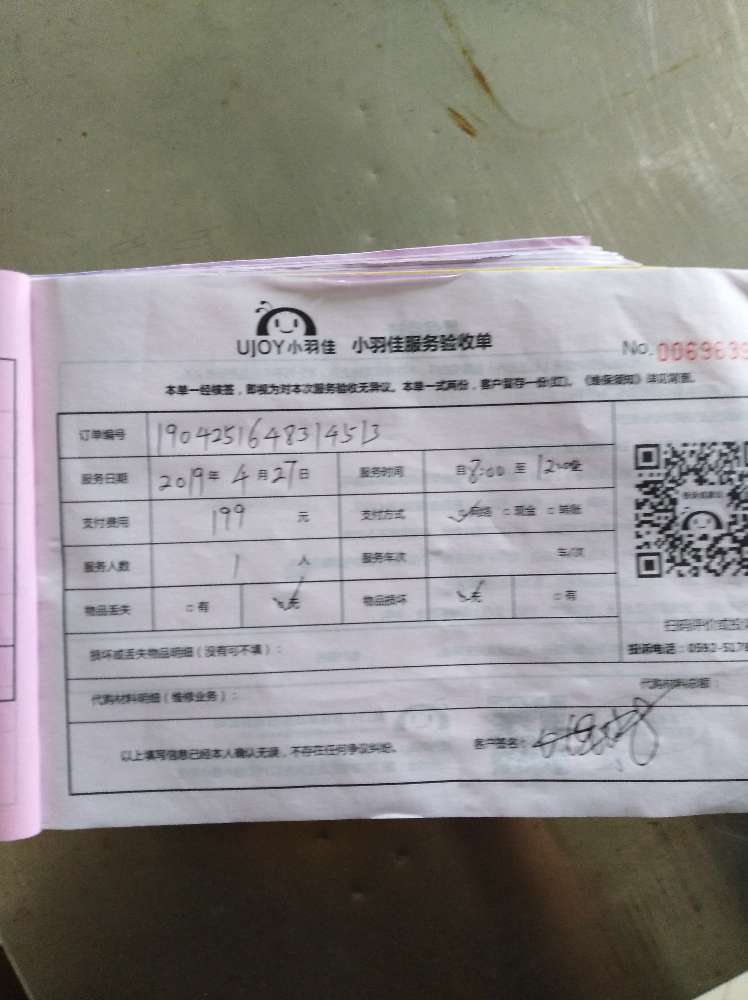 UJOY小羽佳 小羽佳服务验收单
No. 0069639
本单一经核签，即视为对本次服务验收无异议。本单一式两份，客户留存一份(红)。《维保须知》详见背面。
订单编号 1904251648314513
服务日期 2019年 4月27日 服务时间 自8:00至12:00
支付费用 199 元 支付方式 网络 □现金 □转账
服务人数 1 人 服务年次 年/次
物品丢失 □有 无 物品损坏 无 □有
损坏或丢失物品明细（没有可不填）：
扫码评价或投
投诉电话：0592-5179
代购材料明细（维修业务）： 代购材料总额：
以上填写信息已经本人确认无误，不存在任何争议纠纷。 客户签名：